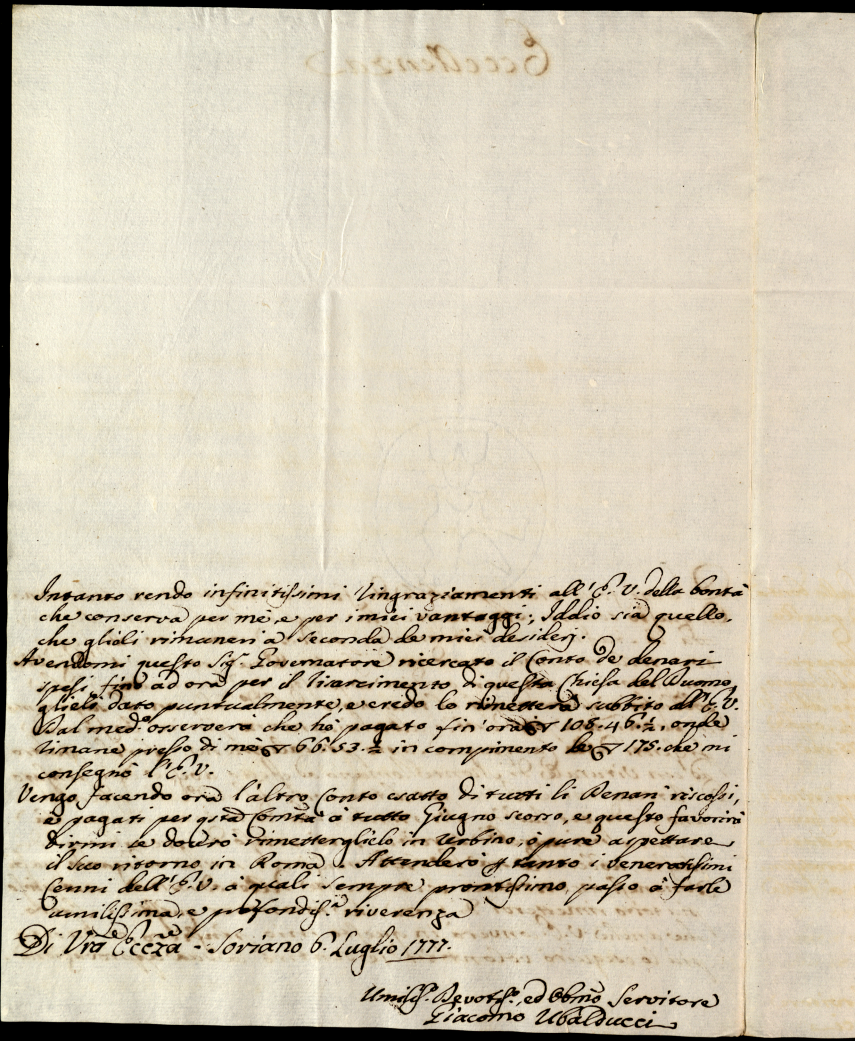 Intanto rendo infinitissimi ringraziamenti all'E. V. della bontà
che conserva per me, e per i miei vantaggi; Iddio sia quello,
che glieli rimuneri a seconda de miei desiderj.
Avendomi questo Sig.r Governatore ricercato il Conto de denari
spesi fino ad ora per il risarcimento di questa Chiesa del Duomo,
glielò dato puntualmente, e credo lo rimetterà subbito all'E. V.
Dal med.o osserverà che hò pagato fin'ora 108.46.½, onde
rimane presso di me 66.53.½ in compimento de 175. che mi
consegnò l'E. V.
Vengo facendo ora l'altro Conto esatto di tutti li Denari riscossi,
e pagati per q̃sta Com̃tà a tutto Giugno scorso, e questo favorirà
dirmi se dovrò rimetterglielo in Urbino, ò pure aspettare
il suo ritorno in Roma. Attenderò tanto i veneratissimi
Cenni dell'E. V. a quali sempre prontissimo, passo à farle
umilissima, e profondis.a riverenza
Di Vr̃a Ecc̃za - Soriano 6. Luglio 1777.
Umiliss.o Devotis.o, ed Obb̃mo Servitore
Giacomo Ubalducci